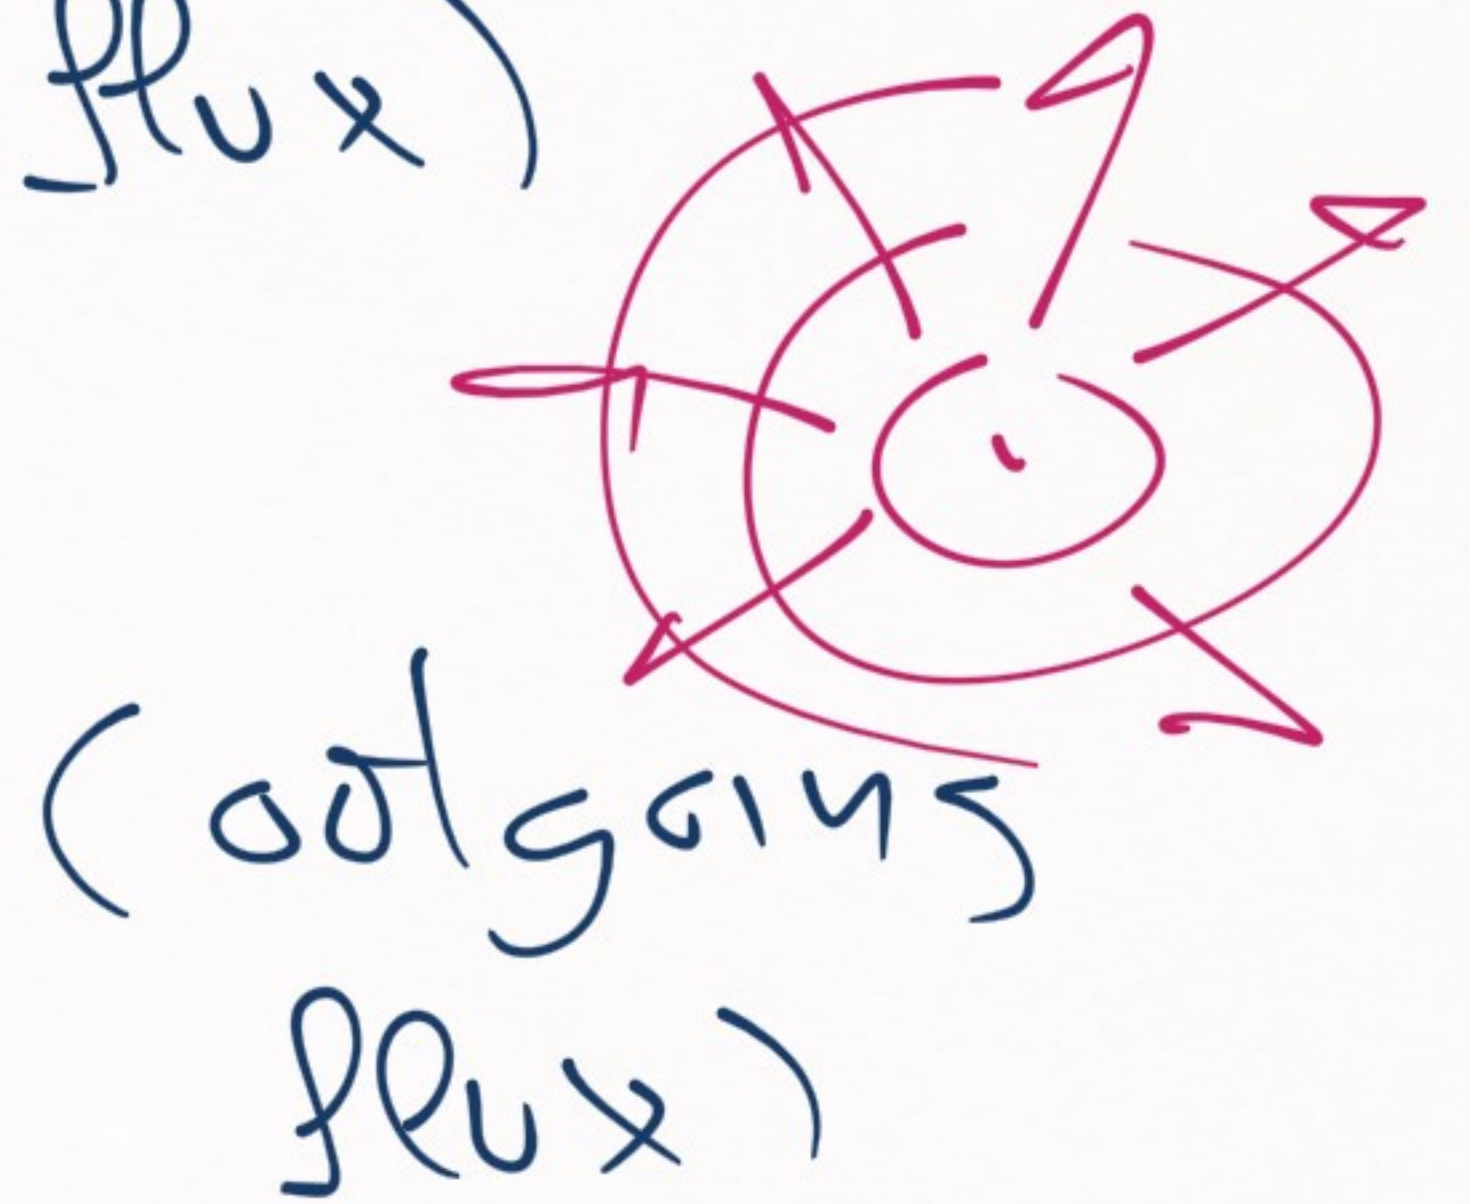 flux)
(outgoing
flux)